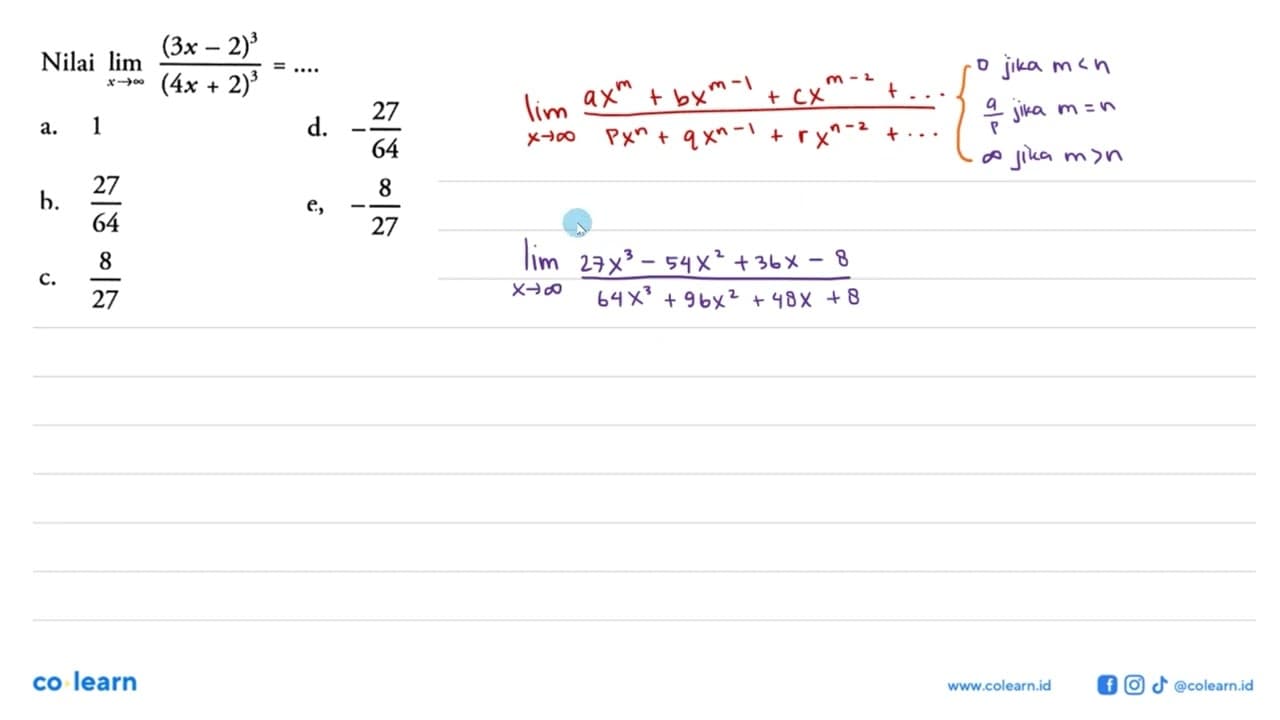 Nilai lim x→∞ (3x – 2)³ / (4x + 2)³ = ....
a. 1
b. 27/64
c. 8/27
d. –27/64
e, –8/27
lim x→∞ (ax^m + bx^(m-1) + cx^(m-2) + ...) / (px^n + qx^(n-1) + rx^(n-2) + ...)
0 jika m < n
a/p jika m = n
∞ jika m > n
lim x→∞ (27x³ - 54x² + 36x - 8) / (64x³ + 96x² + 48x + 8)
co learn
www.colearn.id
@colearn.id